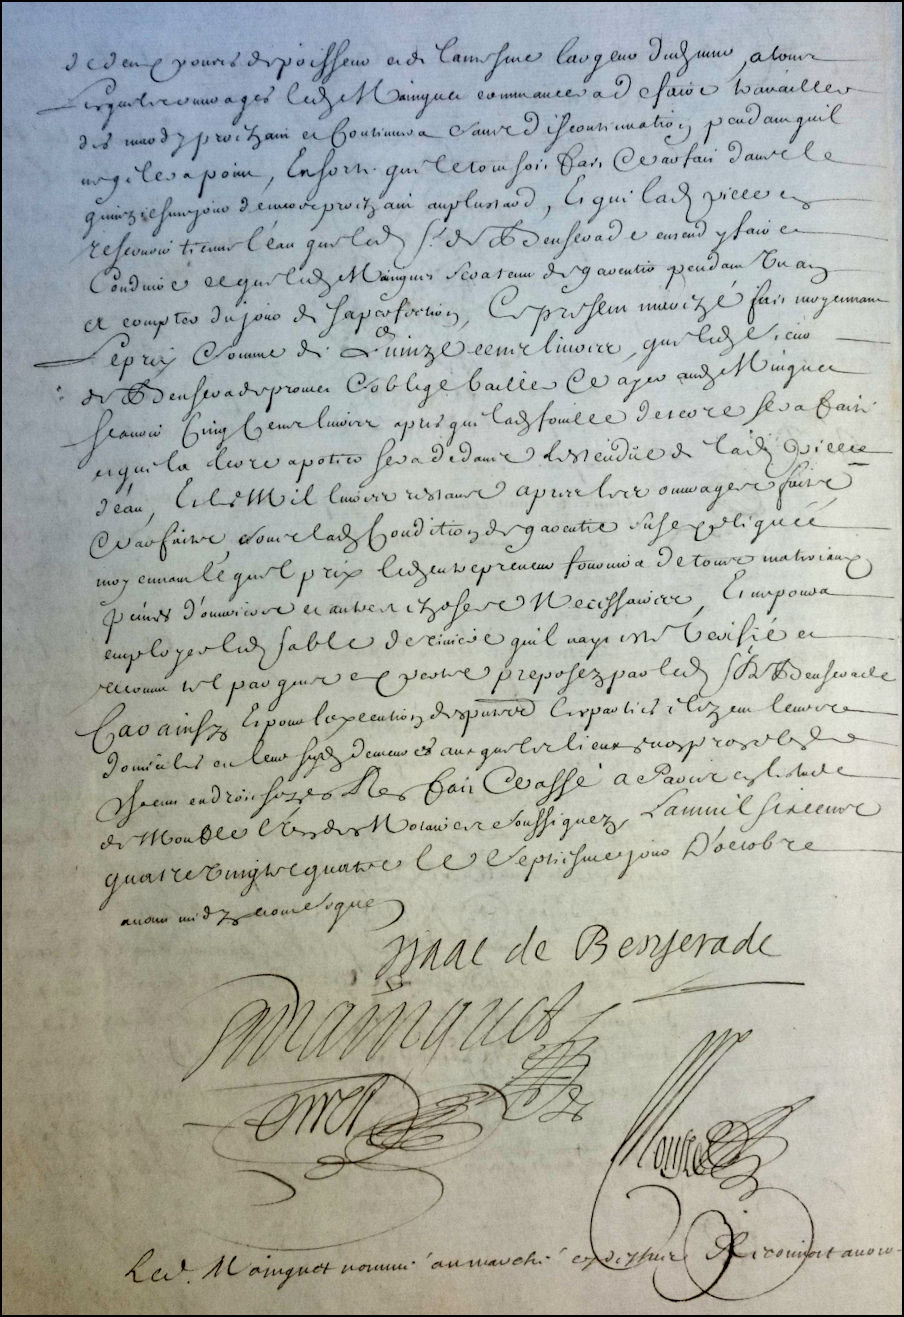 de deux pouces depoisseur et de la mesme largeur dud mur, a tous
lesquels ouvrages led Mainguet commancera de faire travailler
des mardy prochain et Continuera sans discontinuation pendant quil
ne gelera point, Ensorte que le tout soit fait et parfait dans le
quinziesme jour de prochain au plus tard, Et que lad piece et
reservoir tienne l'eau que led Sr de Benserade entend y faire
Conduire et que led Mainguet sera tenu de garentir pendant Un an
A compter du jour de sa perfection, Ce present marché fait moyennant
le prix et somme de Quinze cens livres, que led Sieur
de Benserade promet et oblige bailler et payer aud Minguet
scavoir Cinq Cens livres apres que lad fouille de terre sera faite
et que la terre a potier sera dedans l'estendüe de lad piece
d'eau, Et les Mil livres restans apres les ouvrages faits
et parfaits, sous lad Condition de garentie susexpliquée
moyennant lequel prix led entrepreneur fournira de tous materiaux
peines d'ouvriers et autres choses Necessaires, Et ne poura
employer led sable de riviere quil nayt esté veriffié et
reconnu tel par gens experts preposez par led Sr de Benserade
Car ainsy Et pour l'execution des presentes les parties elizent leurs
domiciles en leurs susd demeures ausquels lieux nonobstant
chacun endroit soy Fait et passé a Paris en l'estude
de Mousle l'un des Notaires soussignez, L'an mil six cens
quatre vingts quatre le Septiesme jour D'octobre
avant midy et ont signé
Isaac de Benserade
Mainguet
Mousle
Led. Mainguet nommé au marché